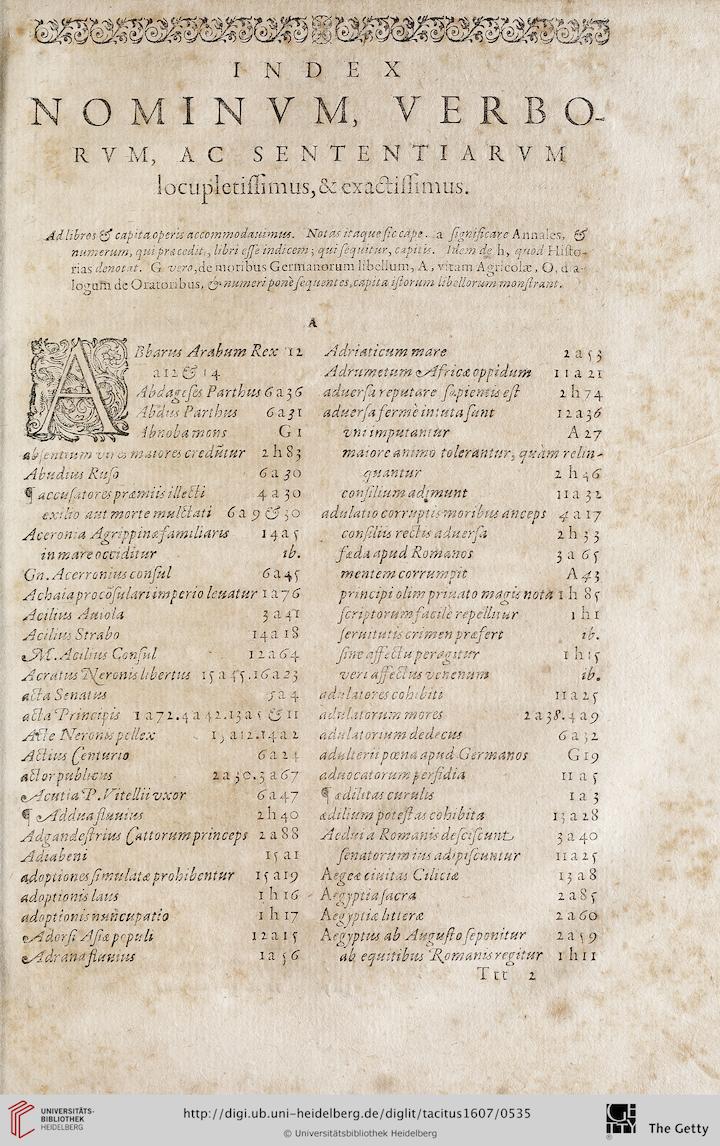 INDEX
NOMINVM, VERBO-
RVM, AC SENTENTIARVM
locupletissimus, & exactissimus.
Ad libros & capita operis accommodauimus. Notas itaque sic cape. a significare Annales, &
numerum, qui præcedit, libri esse indicem; qui sequitur, capitis. Idem de h, quod Histo-
rias denotat. G vero, de moribus Germanorum libellum, A, vitam Agricolæ, O, dia-
logum de Oratoribus, & numeri ponè sequentes, capita istorum libellorum monstrant.
A
ABbarus Arabum Rex 12
a 12 & 14
Abdageses Parthus 6 a 36
Abdus Parthus 6 a 31
Abnoba mons G 1
absentium viros maiores credūtur 2 h 83
Abudius Ruso 6 a 30
¶ accusatores præmiis illecti 4 a 30
exilio aut morte mulctati 6 a 9 & 30
Aceronia Agrippinæ familiaris 14 a 5
in mare occiditur ib.
Gn. Acerronius consul 6 a 45
Achaia procōsulari imperio leuatur 1 a 76
Acilius Auiola 3 a 41
Acilius Strabo 14 a 18
M. Acilius Consul 12 a 64
Acratus Neronis libertus 15 a 45. 16 a 23
acta Senatus 5 a 4
acta Principis 1 a 72. 4 a 42. 13 a 5 & 11
Acte Neronis pellex 13 a 12. 14 a 2
Actius Centurio 6 a 24
actor publicus 2 a 30. 3 a 67
Acutia P. Vitellii vxor 6 a 47
¶ Addua fluuius 2 h 40
Adgandestrius Cattorum princeps 2 a 88
Adiabeni 15 a 1
adoptiones simulatæ prohibentur 15 a 19
adoptionis laus 1 h 16
adoptionis nuncupatio 1 h 17
Adorsi Asiæ populi 12 a 15
Adrana fluuius 1 a 56
Adriaticum mare 2 a 53
Adrumetum Africæ oppidum 11 a 21
aduersa reputare sapientis est 2 h 74
aduersa fermè intuta sunt 12 a 36
vni imputantur A 27
maiore animo tolerantur, quàm relin-
quantur 2 h 46
consilium adimunt 11 a 32
adulatio corruptis moribus anceps 4 a 17
consiliis rectis aduersa 2 h 33
fæda apud Romanos 3 a 65
mentem corrumpit A 43
principi olim priuato magis nota 1 h 85
scriptorum facilè repellitur 1 h 1
seruitutis crimen præfert ib.
sine affectu peragitur 1 h 15
veri affectus venenum ib.
adulatores cohibiti 11 a 25
adulatorum mores 2 a 38. 4 a 9
adulatorium dedecus 6 a 32
adulterii pœna apud Germanos G 19
aduocatorum perfidia 11 a 5
¶ ædilitas curulis 1 a 3
ædilium potestas cohibita 13 a 28
Aedui à Romanis desciscunt 3 a 40
senatorum ius adipiscuntur 11 a 25
Aegeæ ciuitas Ciliciæ 13 a 8
Aegyptia sacra 2 a 85
Aegyptiæ litteræ 2 a 60
Aegyptus ab Augusto seponitur 2 a 59
ab equitibus Romanis regitur 1 h 11
Ttt 2
UNIVERSITÄTS-
BIBLIOTHEK
HEIDELBERG
http://digi.ub.uni-heidelberg.de/diglit/tacitus1607/0535
© Universitätsbibliothek Heidelberg
The Getty